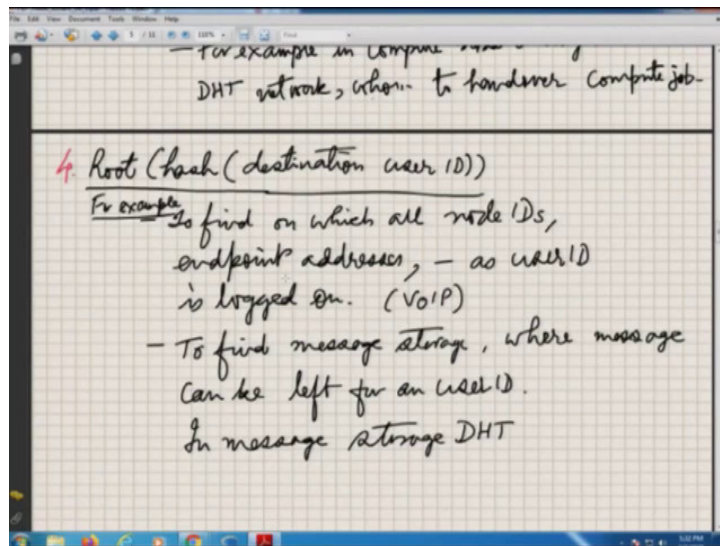 File Edit View Document Tools Window Help
5 / 11
Find
- For example in compute
DHT network, whom to handover compute job-
4. Root (hash (destination user ID))
For example
- To find on which all node IDs,
endpoint addresses, - as userID
is logged on. (VOIP)
- To find message storage, where message
can be left for an userID.
In message storage DHT
5:02 PM